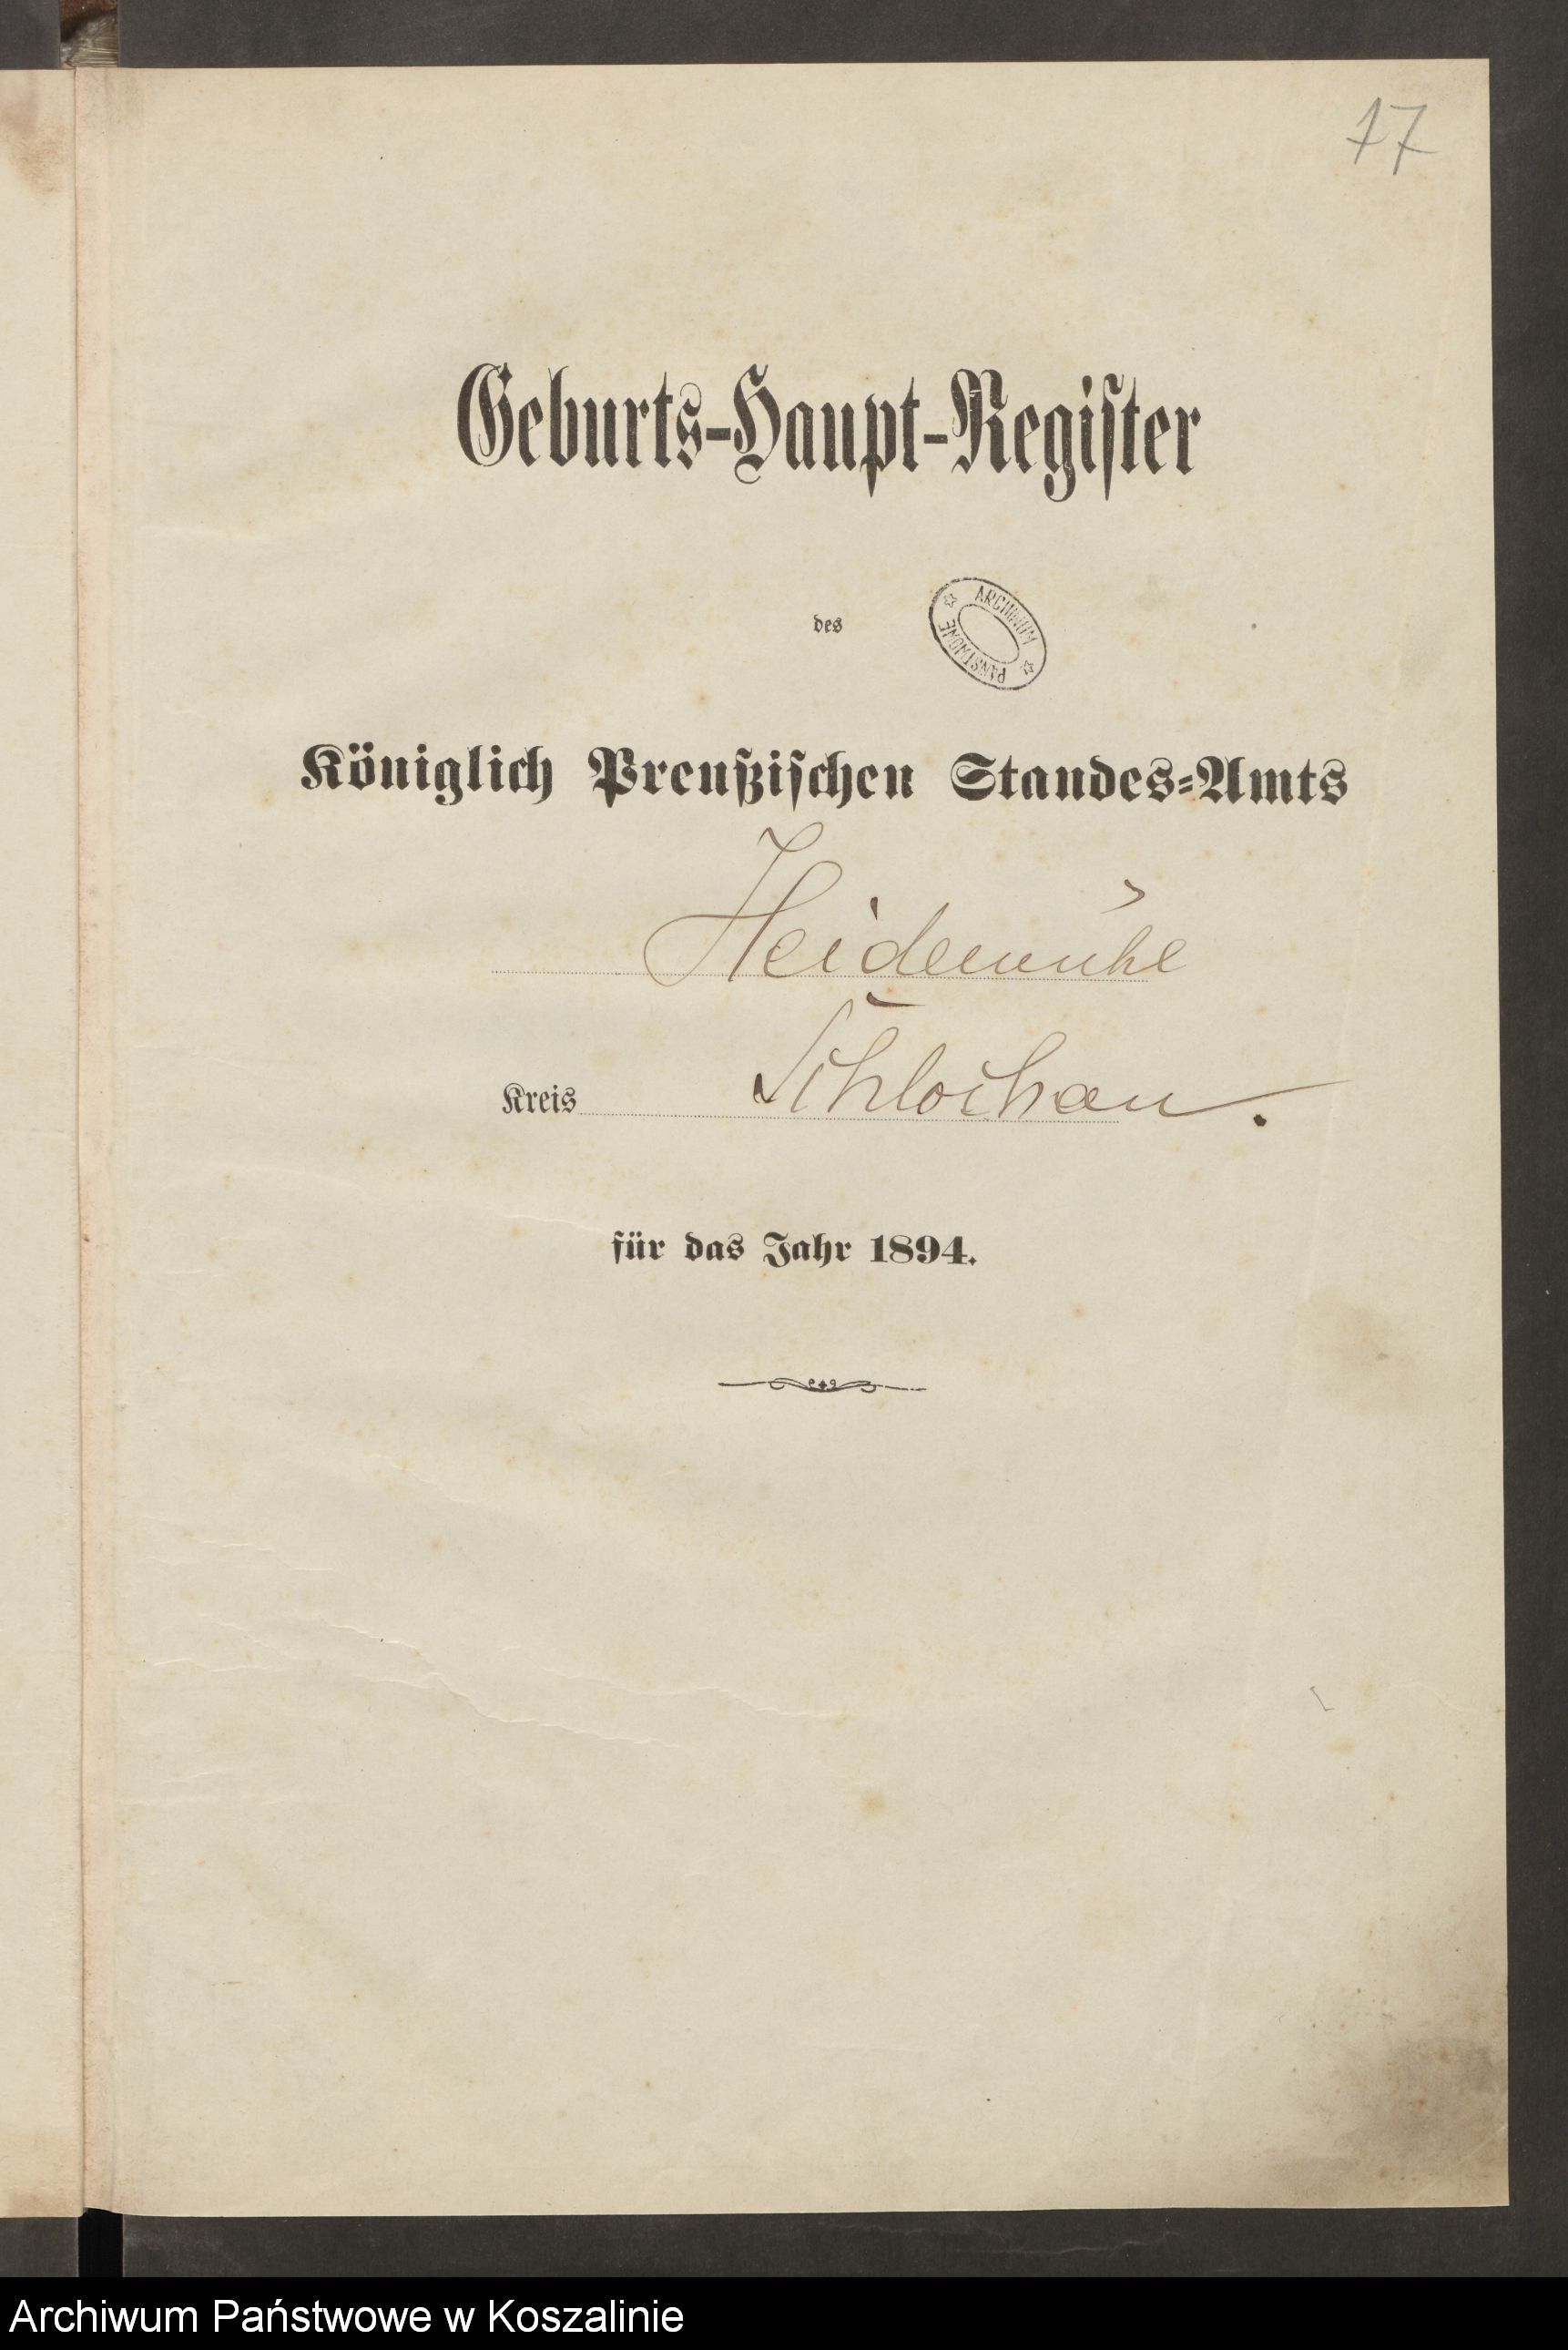 17
Geburts-Haupt-Register
des
ARCHIWUM PAŃSTWOWE
Königlich Preußischen Standes-Amts
Heidemühl
Kreis Schlochau.
für das Jahr 1894.
Archiwum Państwowe w Koszalinie